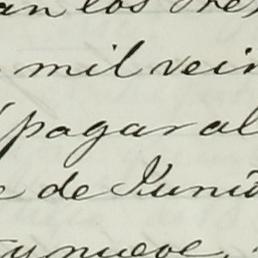 an los tre
mil vein
pagar al
e de Junio
y nueve,